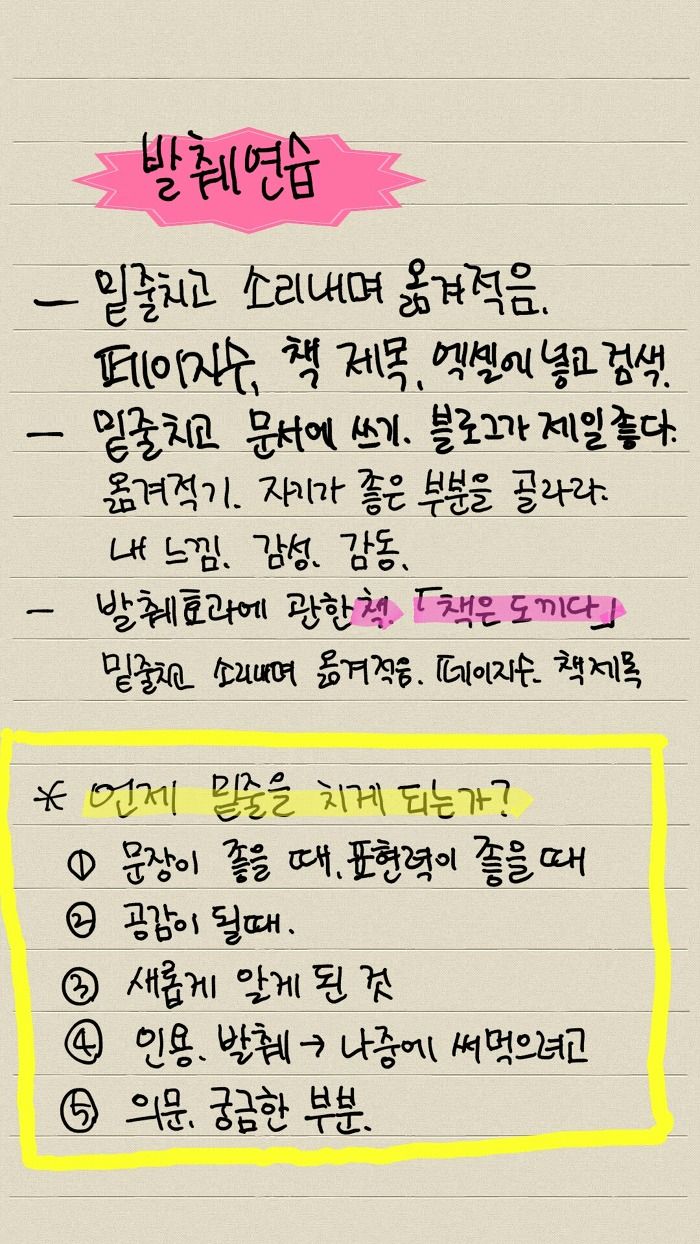 발췌연습
- 밑줄치고 소리내며 옮겨적음.
페이지수, 책 제목, 엑셀에 넣고 검색.
- 밑줄치고 문서에 쓰기. 블로그가 제일 좋다.
옮겨적기. 자기가 좋은 부분을 골라라.
내 느낌. 감성. 감동.
- 발췌효과에 관한 책. 「책은 도끼다」
밑줄치고 소리내며 옮겨적음. 페이지수. 책 제목
* 언제 밑줄을 치게 되는가?
① 문장이 좋을 때, 표현력이 좋을 때
② 공감이 될때.
③ 새롭게 알게 된 것
④ 인용. 발췌 → 나중에 써먹으려고
⑤ 의문. 궁금한 부분.